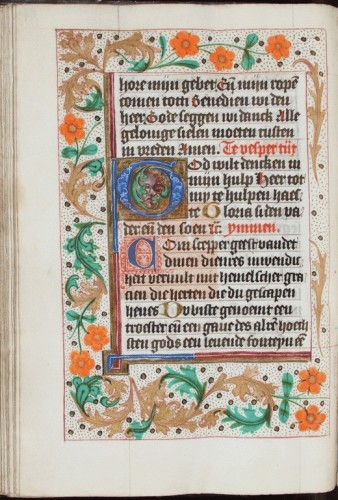 hore mijn gebet Eñ mijn roepe
comen tot ti Benedien wi den
heer Gode seggen wi danck Alle
gelovige sielen moeten rusten
in vreden Amen. Te vesper tijt
God wilt dencken in
mijn hulp Heer tot
mi te hulpen haes
te Gloria si den va
der eñ den soen ymmen.
Com scepper geest vander
dinen dienres inwendic
heit vervult mit hemelscher gra
cien die herten die du gescapen
heves Du biste genoemt een
trooster eñ een gave des alre hoech
sten gods een levende fonteyn